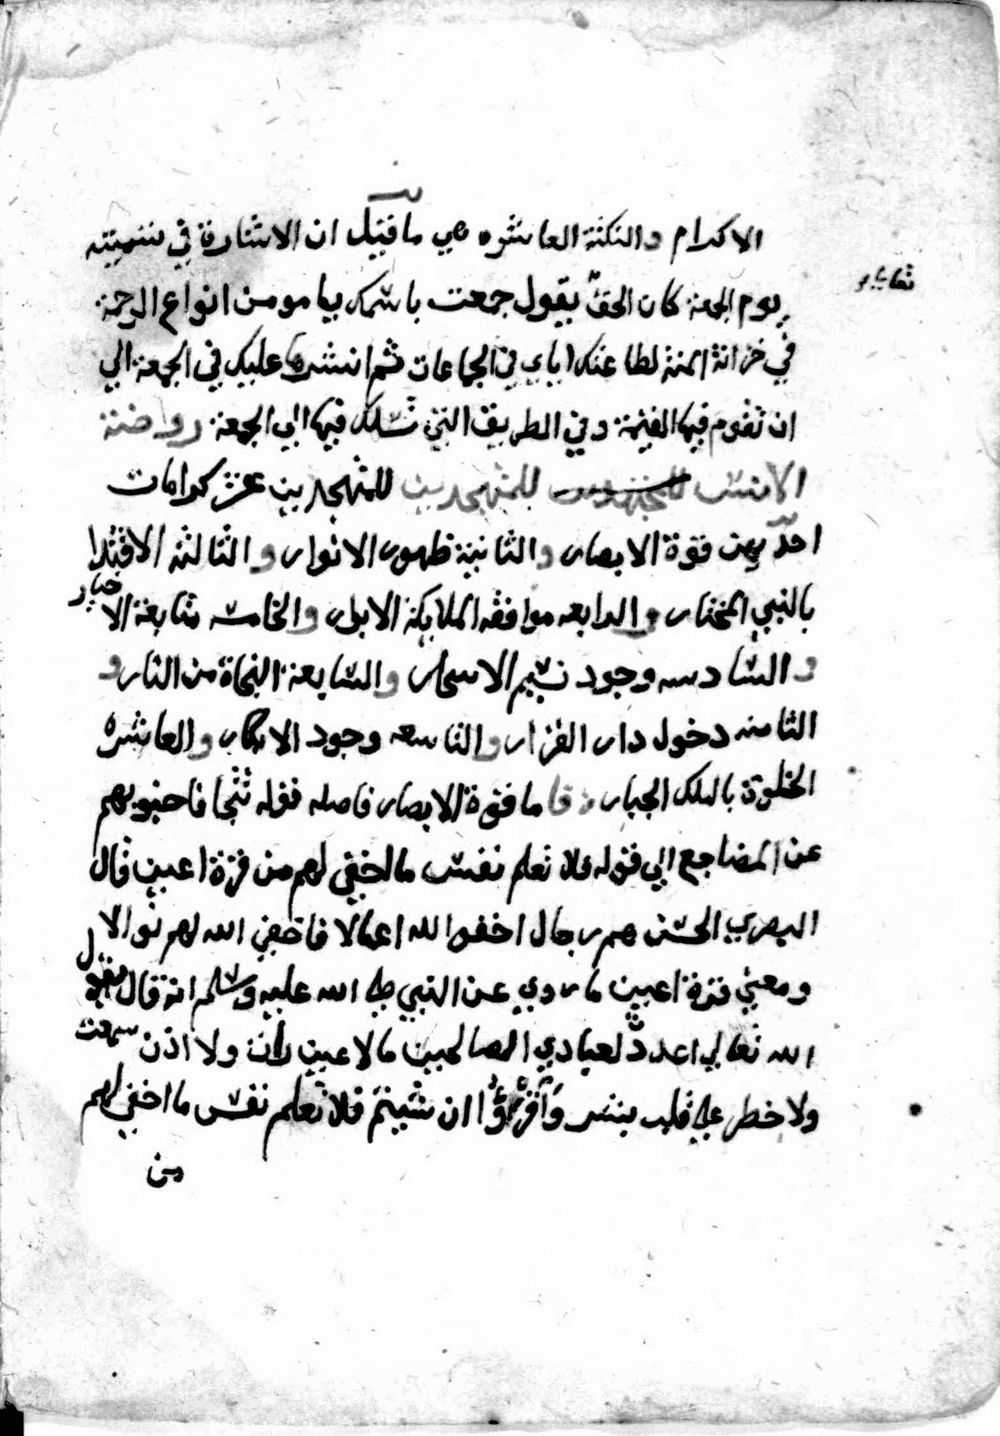 الاكرام والنكتة العاشره هي ما قيل ان الاشارة في تسميته
يوم الجمعة كان الحق يقول جمعت باسمك يا مومن انواع الرحمة
في خزانة المنة لطاعتك اياي في الجماعات ثم انشرها عليك في الجمعة الي
ان تقوم فيها القيمة وفي الطريق التي تسلك فيها الي الجمعة روضة
الانس للمتهجدين للمتهجدين عشر كرامات
احديهن قوة الابصار والثانية ظهور الانوار والثالثة الاقتدا
بالنبي المختار والرابعه موافقه الملايكة الابرار والخامسه متابعة الاخيار
والسادسه وجود نسيم الاسحار والسابعة النجاة من النار و
الثامنه دخول دار القرار والتاسعه وجود الابكار والعاشره
الخلوة بالملك الجبار فاما قوة الابصار فاصله قوله تتجافا جنوبهم
عن المضاجع الي قوله فلا تعلم نفس ما اخفي لهم من قرة اعين قال
البصري الحسن هم رجال اخفوا لله اعمالا فاخفي الله لهم نوالا
ومعني قرة اعين ما روي عن النبي صلي الله عليه وسلم انه قال يقول
الله تعالي اعددت لعبادي الصالحين ما لا عين رات ولا اذن سمعت
ولا خطر علي قلب بشر وَاقْرَؤُا ان شيتم فلا تعلم نفس ما اخفي لهم
من